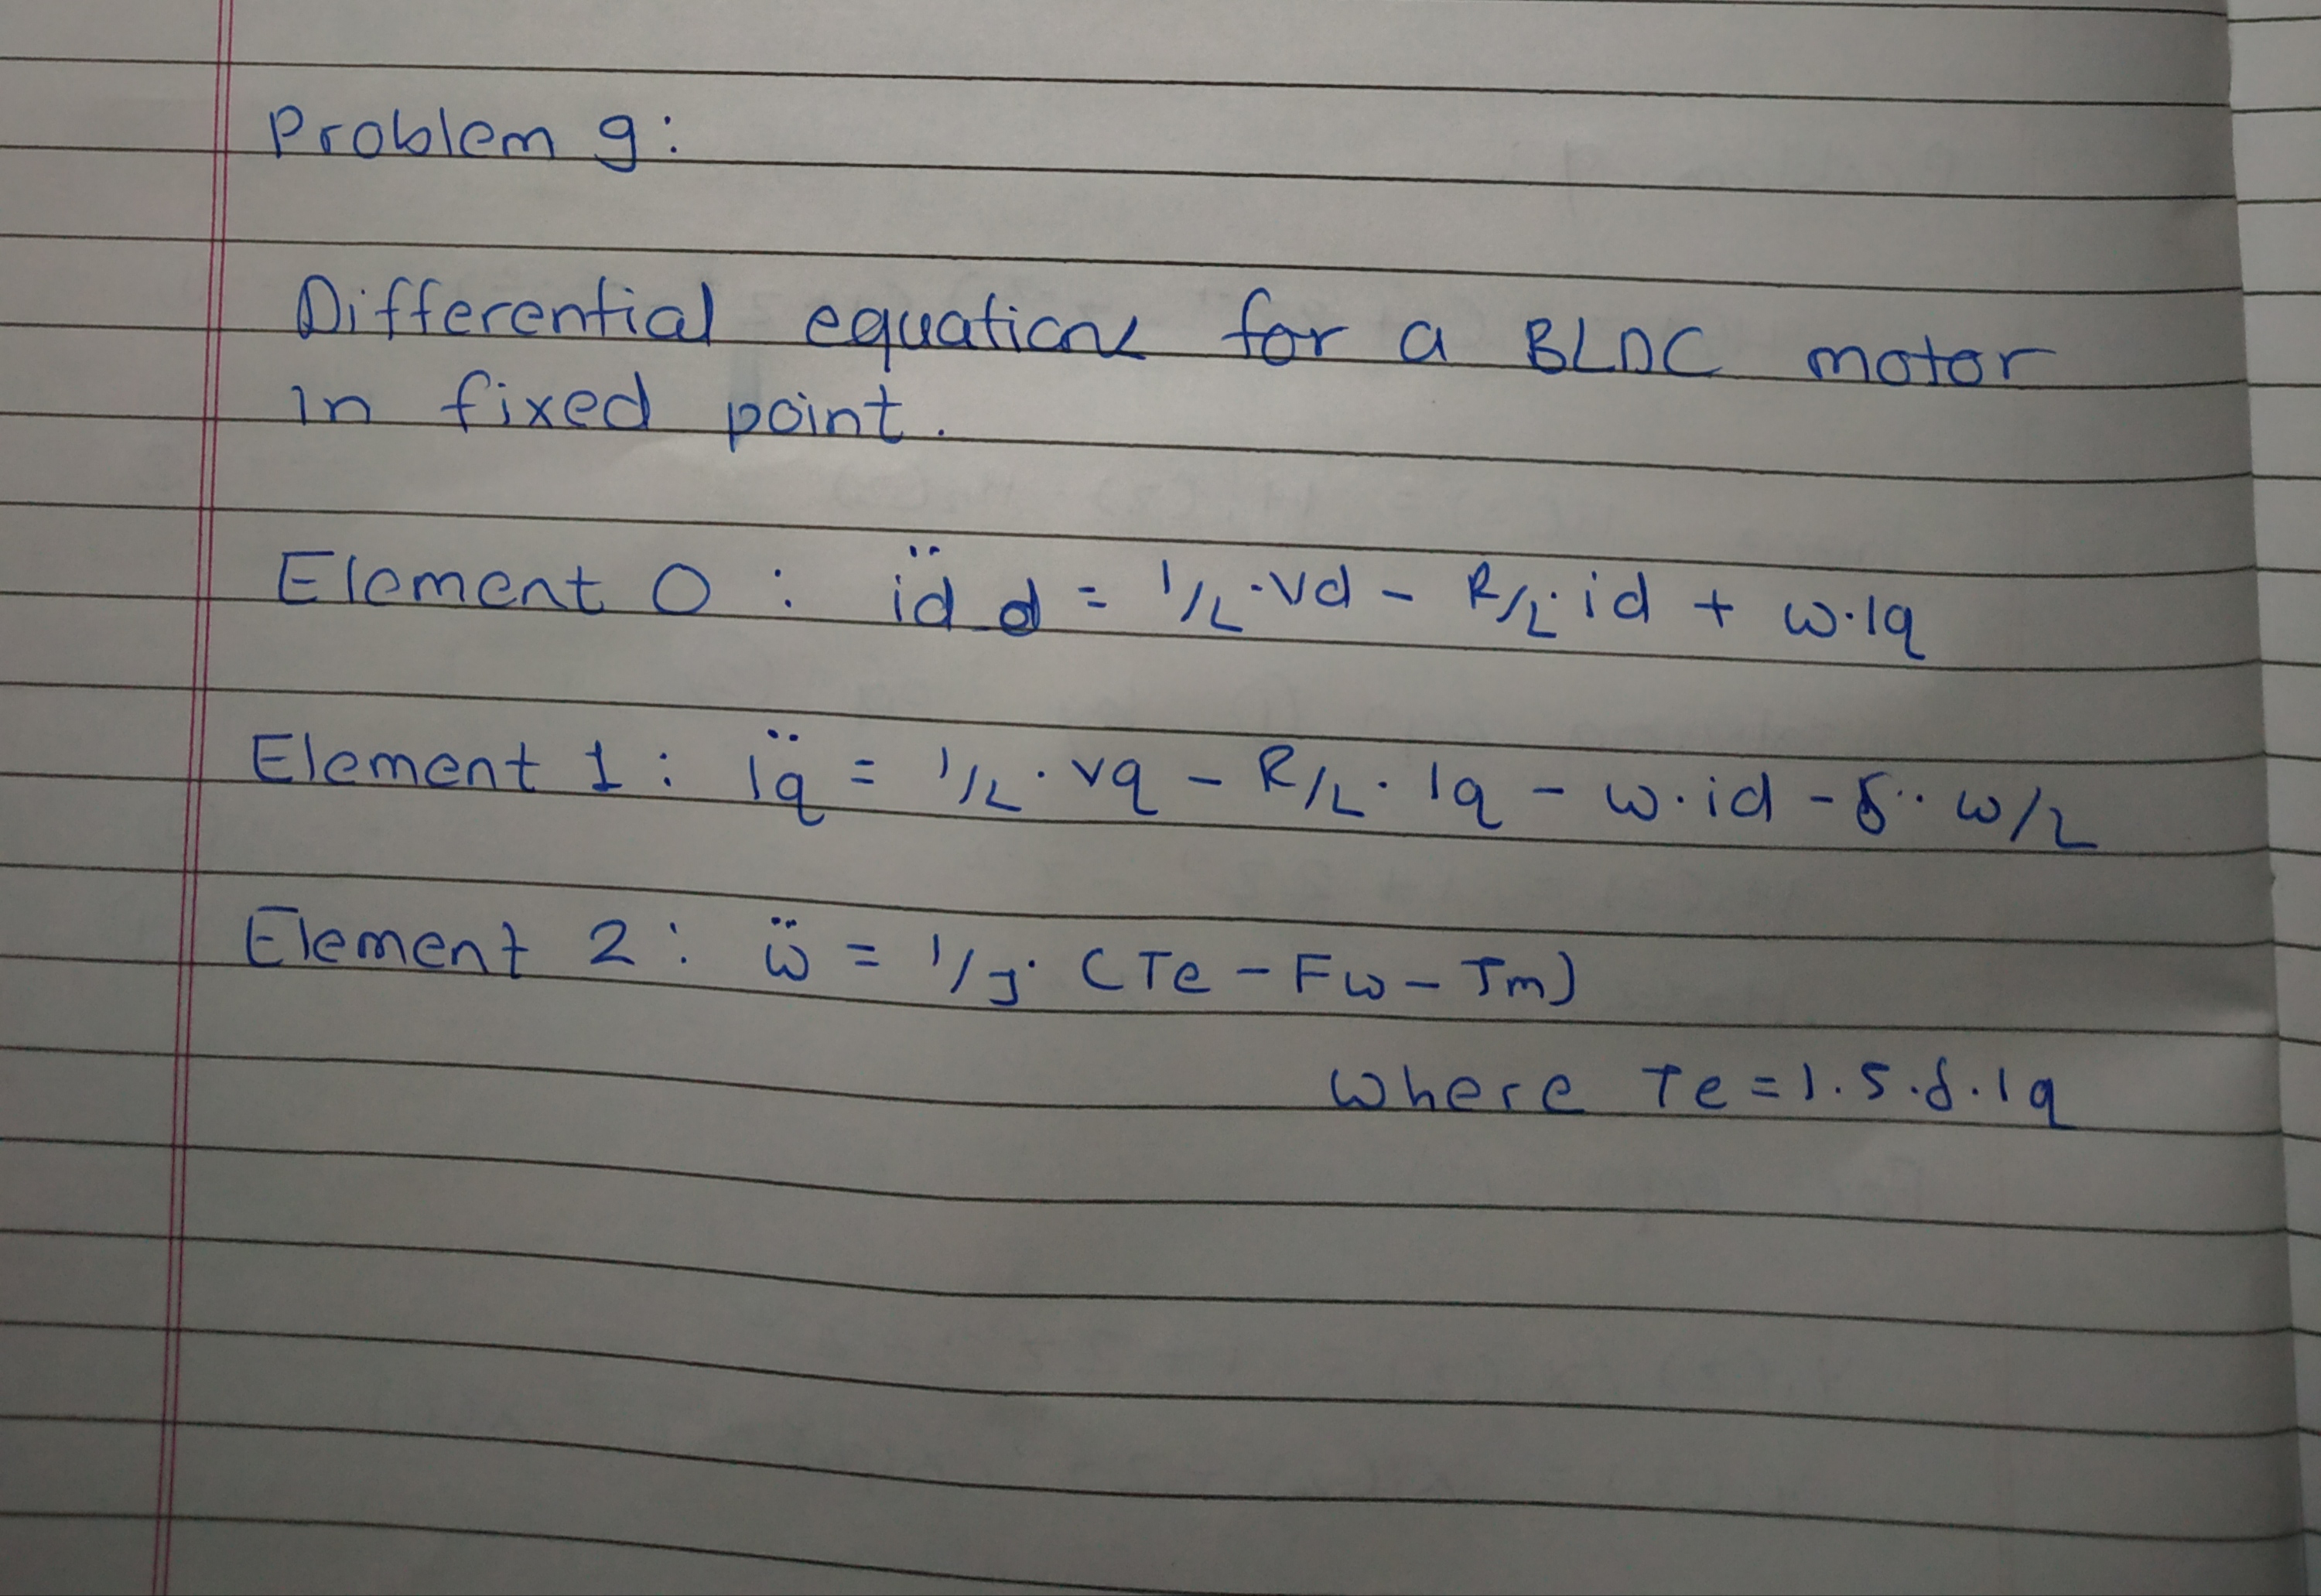 Problem 9:
Differential equations for a BLDC motor
in fixed point.
Element 0 : ïd d = 1/L · Vd - R/L · id + ω · Iq
Element 1 : ïq = 1/L · vq - R/L · Iq - ω · id - δ · · ω/L
Element 2 : ω̈ = 1/J · (Te - Fω - Tm)
where Te = 1.5 · δ · Iq